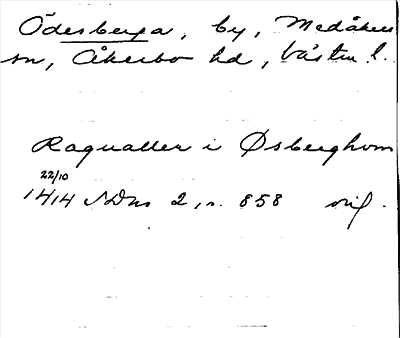 Ödesberga, by, Medåkers
sn, Åkerbo hd, Västm. l.
Ragualder i Øsberghom
22/10
1414 SDns 2, s. 858 orig.